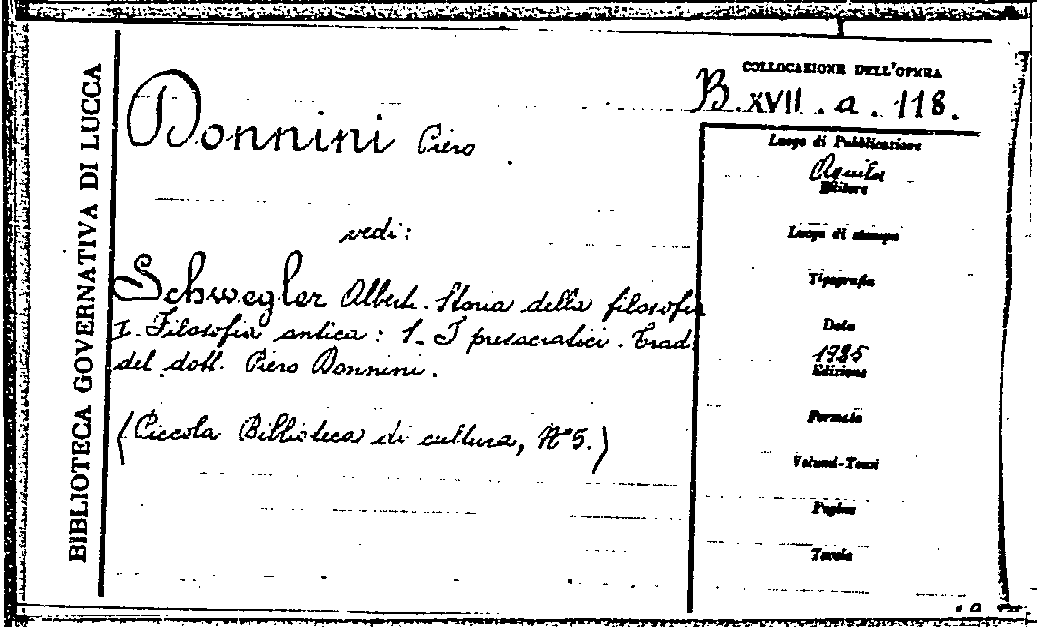 BIBLIOTECA GOVERNATIVA DI LUCCA
COLLOCAZIONE DELL'OPERA
B. XVII . a . 118.
Donnini Piero
vedi:
Schwegler Albert. Storia della filosofia
I. Filosofia antica: 1_ I presocratici. Trad.
del dott. Piero Donnini.
(Piccola Biblioteca di cultura, N° 5.)
Luogo di Pubblicazione
Aquila
Editore
Luogo di stampa
Tipografia
Data
1925
Edizione
Formato
Volumi-Tomi
Pagine
Tavole